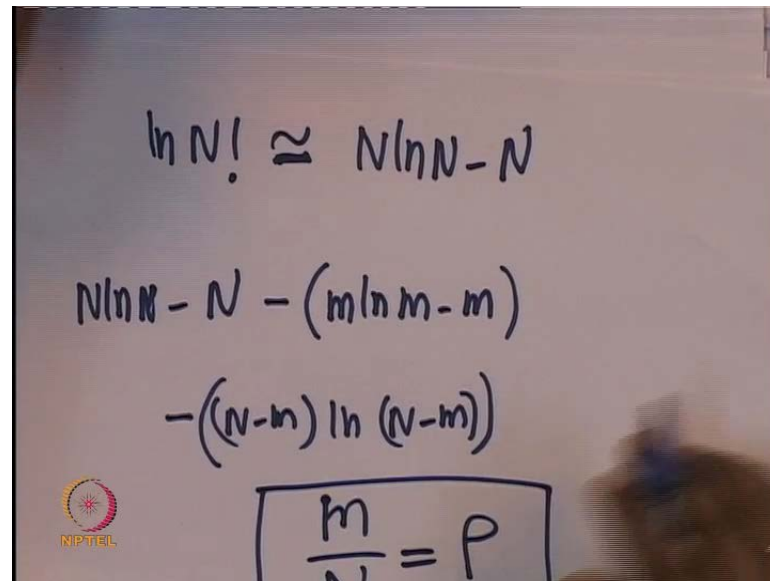 ln N! ≅ N ln N - N
N ln N - N - (m ln m - m)
-((N-m) ln (N-m))
m/N = P
NPTEL